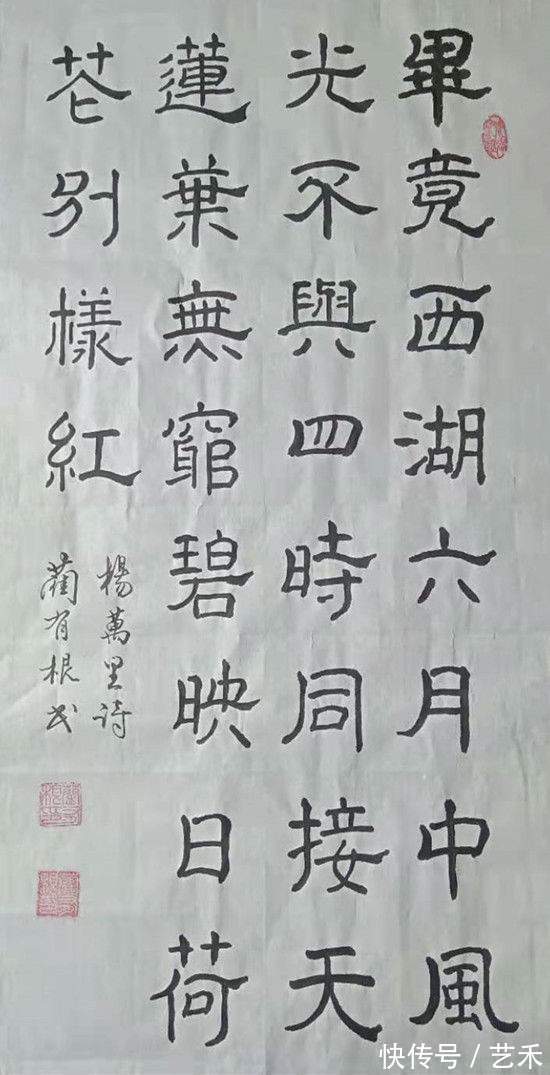 畢竟西湖六月中風
光不與四時同接天
蓮葉無窮碧映日荷
花別樣紅
楊萬里詩
有根书
快传号 / 艺禾